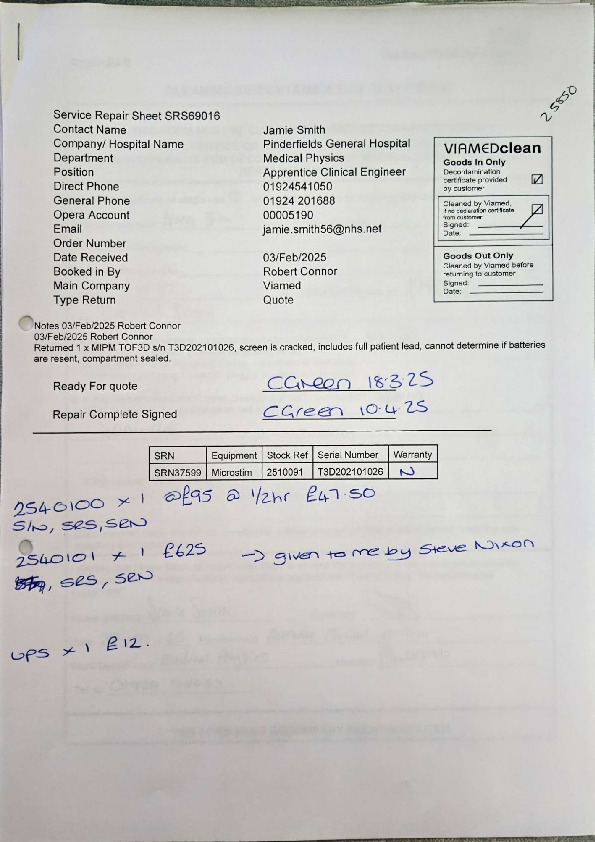 25850
Service Repair Sheet SRS69016
Contact Name Jamie Smith
Company/ Hospital Name Pinderfields General Hospital
Department Medical Physics
Position Apprentice Clinical Engineer
Direct Phone 01924541050
General Phone 01924 201688
Opera Account 00005190
Email jamie.smith56@nhs.net
Order Number
Date Received 03/Feb/2025
Booked in By Robert Connor
Main Company Viamed
Type Return Quote
VIAMEDclean
Goods In Only
Decontamination
certificate provided
by customer
Cleaned by Viamed,
if no declaration certificate
from customer
Signed:
Date:
Goods Out Only
Cleaned by Viamed before
returning to customer
Signed:
Date:
Notes 03/Feb/2025 Robert Connor
03/Feb/2025 Robert Connor
Returned 1 x MIPM TOF3D s/n T3D202101026, screen is cracked, includes full patient lead, cannot determine if batteries
are resent, compartment sealed.
Ready For quote CGreen 18.3.25
Repair Complete Signed CGreen 10.4.25
SRN Equipment Stock Ref Serial Number Warranty
SRN37599 Microstim 2510091 T3D202101026 N
2540100 x 1 @£95 @ 1/2hr £47.50
S/N, SRS, SRN
2540101 x 1 £625 → given to me by Steve Nixon
, SRS, SRN
UPS x 1 £12.